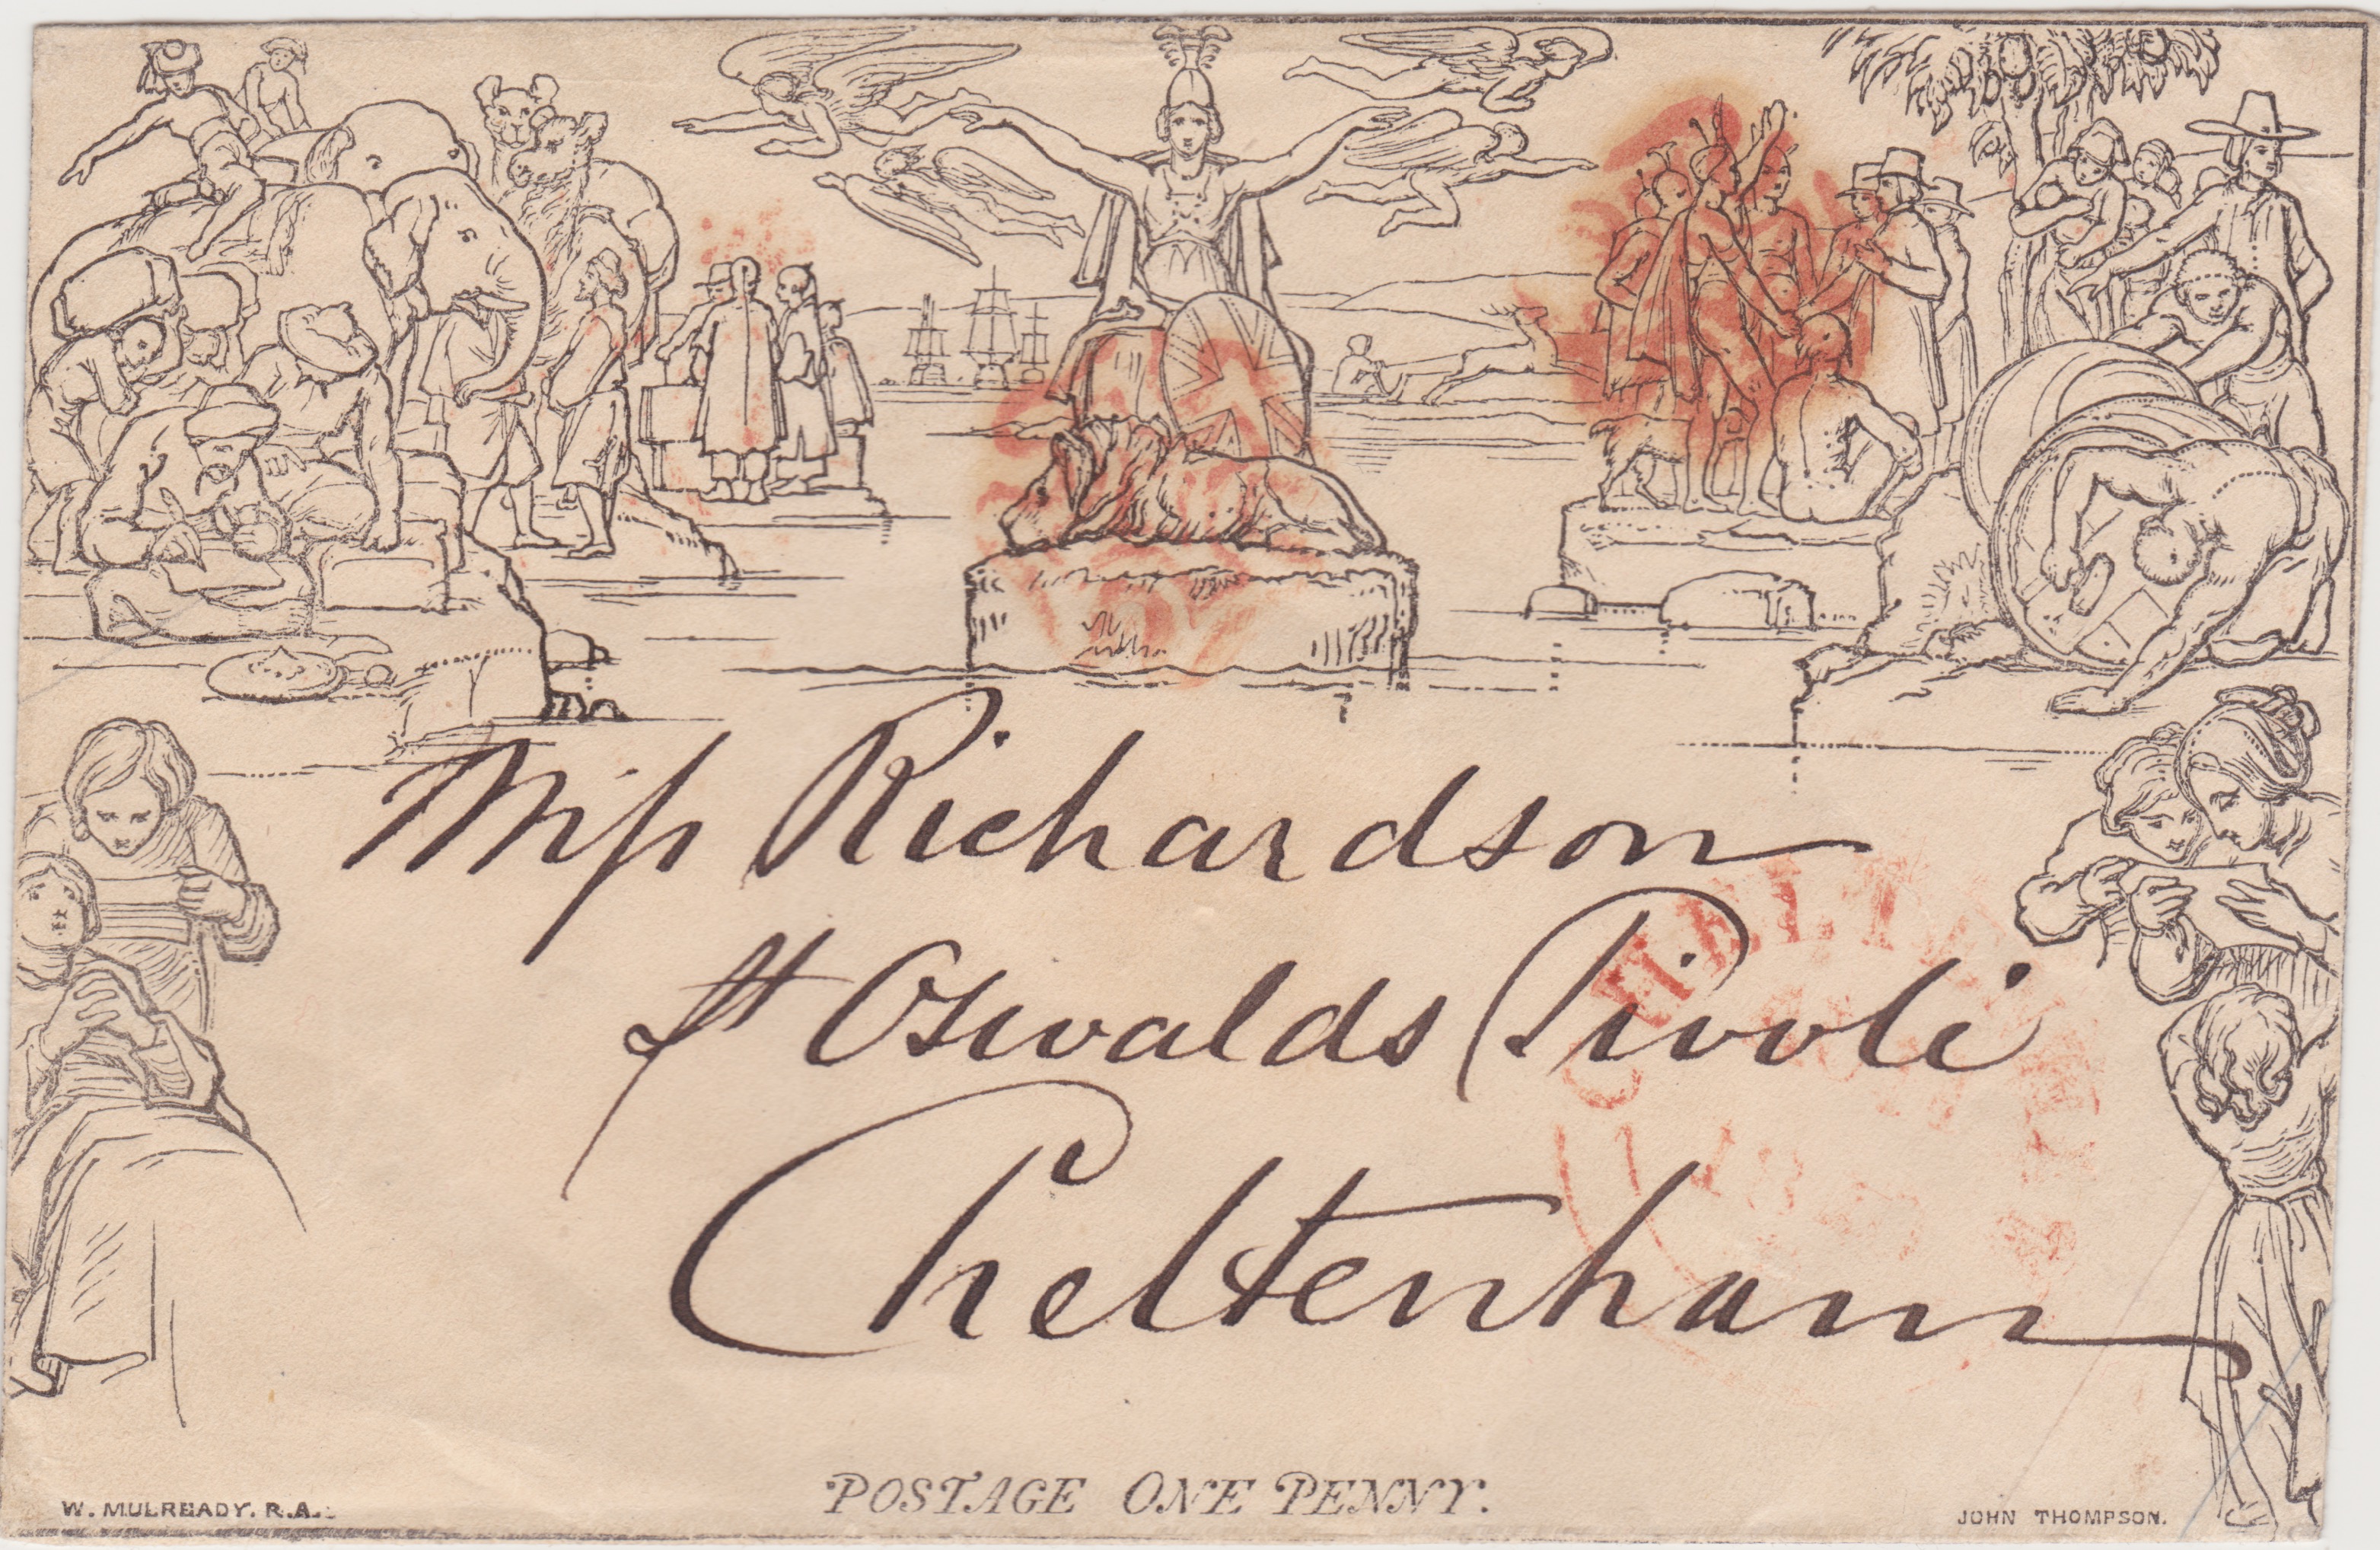 Miſs Richardson
St Oswalds Tivoli
Cheltenham
CHELTENHAM
POSTAGE ONE PENNY.
W. MULREADY. R.A.
JOHN THOMPSON.